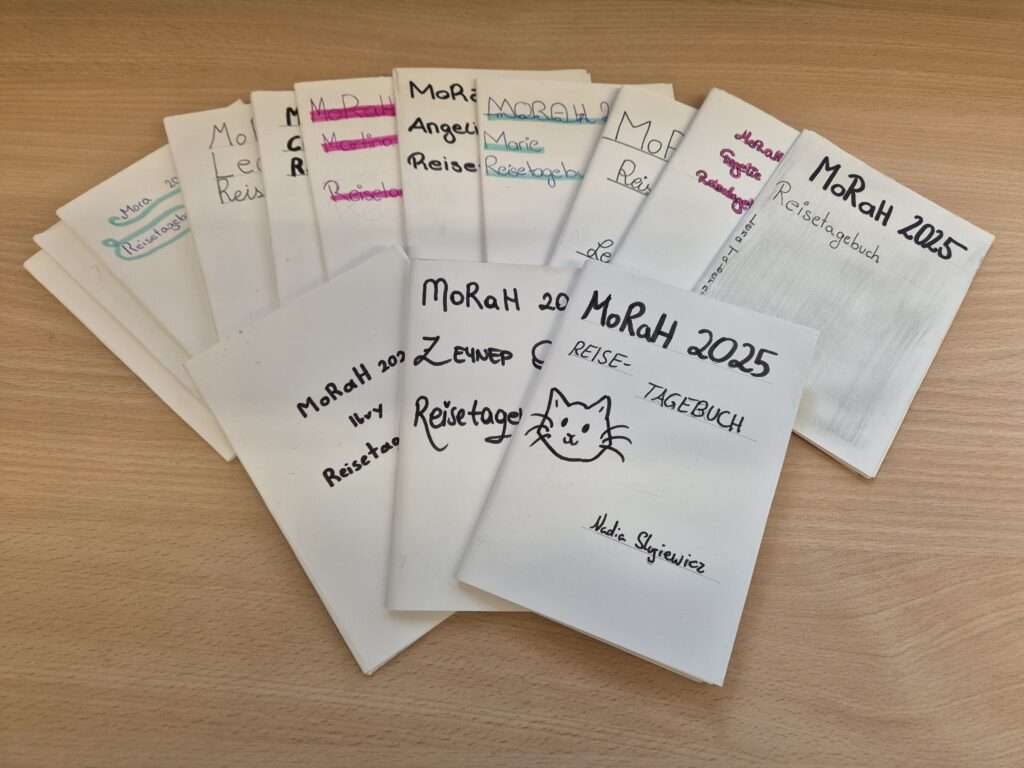 Mora 20
Reisetagebu
Mo
Lec
Reis
M
C
R
MoRaH
Marlina
Reiseta
MoRa
Angeli
Reise
MORAH 2
Marie
Reisetagebu
MoR
Reis
Le
MoRaH
Reisetage
MoRaH 2025
Reisetagebuch
MoRaH 202
Reisetag
MoRaH 20
ZEYNEP
Reisetage
MoRaH 2025
REISE-
TAGEBUCH
Nadia